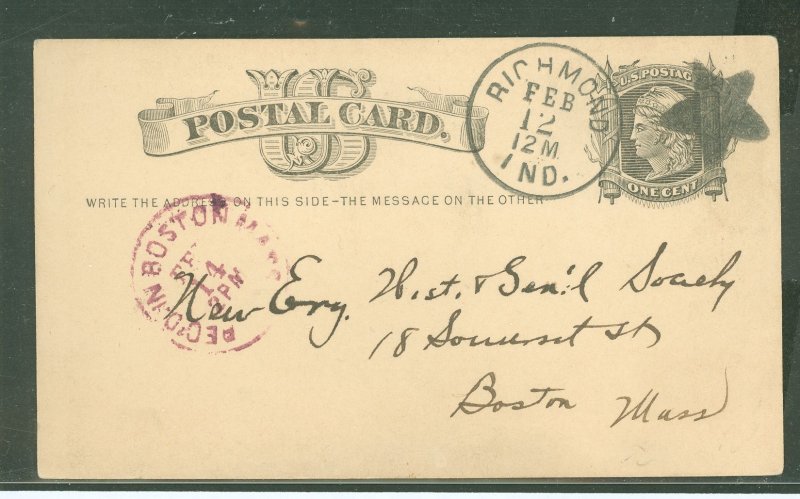 US
POSTAL CARD.
RICHMOND
FEB
12
12 M.
IND.
U.S. POSTAGE
ONE CENT
WRITE THE ADDRESS ON THIS SIDE–THE MESSAGE ON THE OTHER
REC'D IN BOSTON MASS
FEB
14
2PM
New Eng. Hist. & Gen'l Society
18 Somerset St
Boston Mass